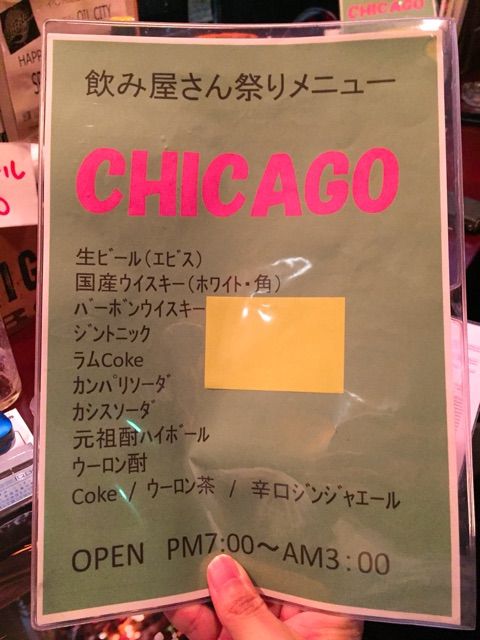 OIL CITY
HAPP
CHICAGO
飲み屋さん祭りメニュー
CHICAGO
生ビール(エビス)
国産ウイスキー(ホワイト・角)
バーボンウイスキー
ジントニック
ラムCoke
カンパリソーダ
カシスソーダ
元祖酎ハイボール
ウーロン酎
Coke / ウーロン茶 / 辛口ジンジャエール
OPEN PM7:00～AM3:00